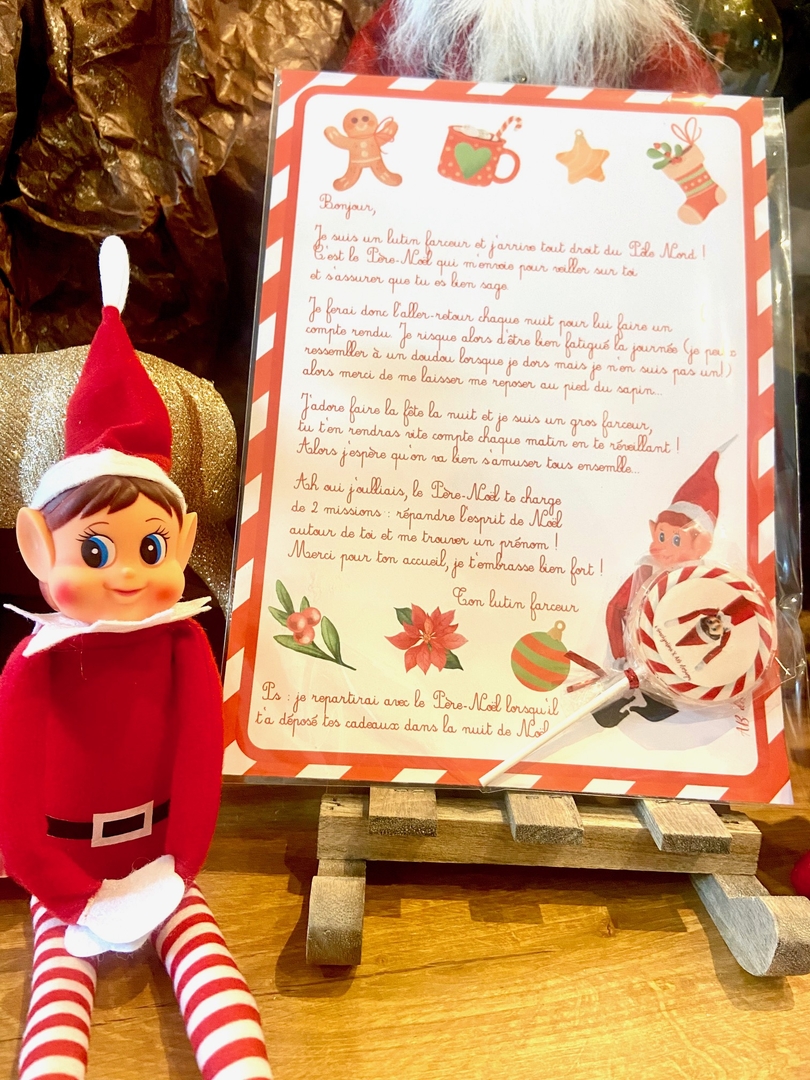 Bonjour,
Je suis un lutin farceur et j'arrive tout droit du Pôle Nord !
C'est le Père-Noël qui m'envoie pour veiller sur toi
et s'assurer que tu es bien sage.
Je ferai donc l'aller-retour chaque nuit pour lui faire un
compte rendu. Je risque alors d'être bien fatigué la journée (je peu
ressembler à un doudou lorsque je dors mais je n'en suis pas un!)
alors merci de me laisser me reposer au pied du sapin...
J'adore faire la fête la nuit et je suis un gros farceur,
tu t'en rendras vite compte chaque matin en te réveillant !
Alors j'espère qu'on va bien s'amuser tous ensemble...
Ah oui j'oubliais, le Père-Noël te charge
de 2 missions : répandre l'esprit de Noël
autour de toi et me trouver un prénom !
Merci pour ton accueil, je t'embrasse bien fort !
Ton lutin farceur
Ps : je repartirai avec le Père-Noël lorsqu'il
t'a déposé tes cadeaux dans la nuit de Noël